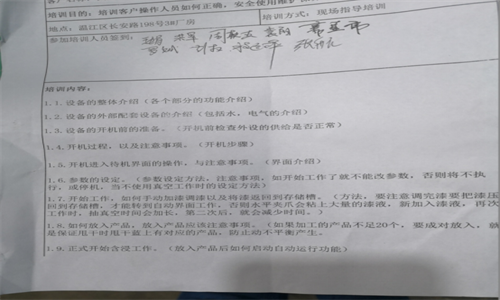 培训目的：培训客户操作人员如何正确，安全使用维护
地点：温江区长安路198号3#厂房
培训方式：现场指导培训
参加培训人员签到：
培训内容：
1.1.设备的整体介绍（各个部分的功能介绍）
1.2.设备的外部配套设备的介绍（包括水、电气的介绍）
1.3.设备的开机前的准备。（开机前检查外设的供给是否正常）
1.4.开机过程，以及注意事项。（开机步骤）
1.5.开机进入待机界面的操作，与注意事项。（界面介绍）
1.6.参数的设定。（参数设定方法，注意事项，如开始工作了就不能改参数，否则将不执
行，或停机，当不使用真空工作时的设定方法）
1.7.开始工作，如何手动加漆调漆以及将漆返回到存储槽。（方法，要注意调完漆要把漆压
回到存储槽，才能转到自动界面工作，否则水平夹爪会粘上大量的漆液，新加入漆液，再次
工作时，抽真空时间会加长，第二次后，就会减少时间。）
1.8.如何放入产品，放入产品应该注意事项。（如果加工的产品不足20个，要成对放入，就
是保证甩干时甩干篮上有对应的产品，防止动不平衡产生。
1.9.正式开始含浸工作。（放入产品后如何启动自动运行功能）